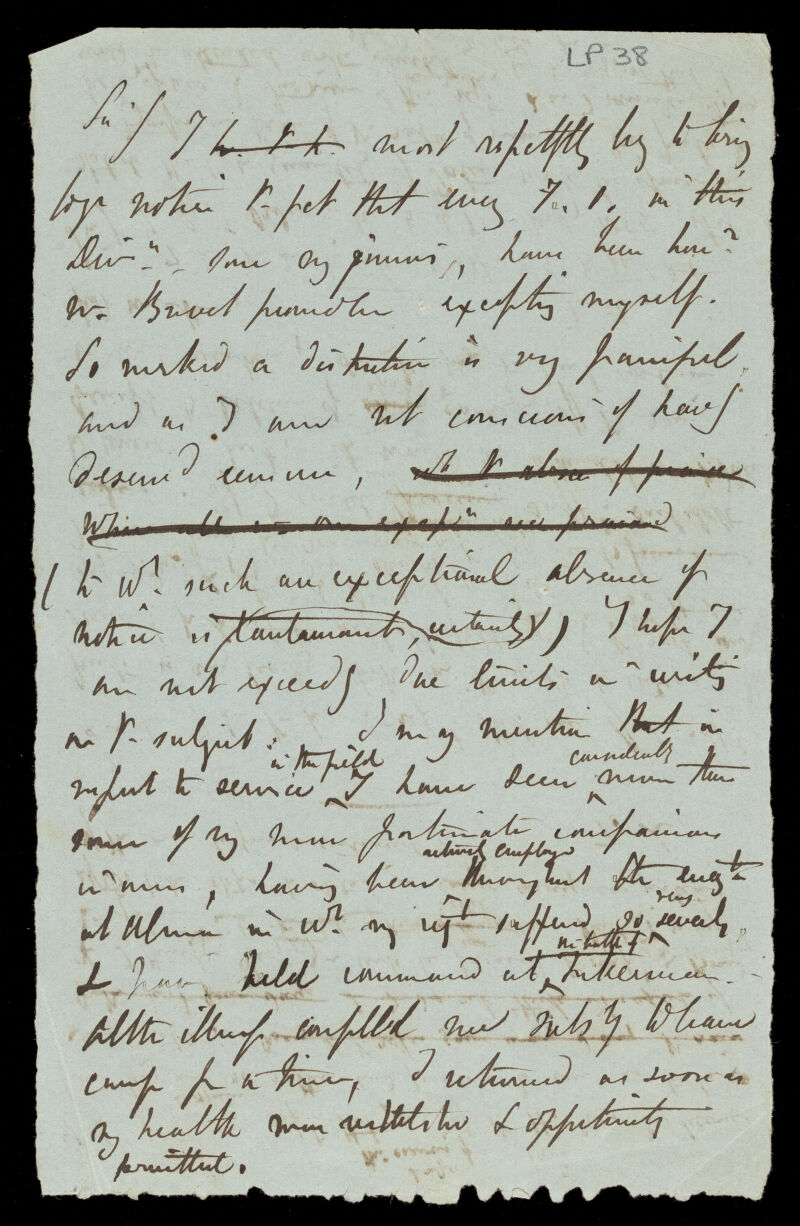 LP 38
Sir/ I h. t. h. most respectfly beg to bring
to yr notice t. fact that every F. O. in this
Divn. - some my juniors, have been hond
w. Brevet promotion excepting myself.
So marked a distinction is very painful,
and as I am not conscious of having
deserved censure, wh t. absence of praise
When all w. one exceptn are praised
( to wh. such an exceptional absence of
notice is tantamount, certainly) ) I hope I
am not exceedg due limits in writing
on t. subject. I may mention that in
respect to service in the field I have seen considerably more than
some of my more fortunate companions
in arms, having been actively employed throughout the engt
at Alma in wh. my regt suffered so very severely,
& have held command at the battle of Inkerman. -
Altho illness compelled me subsy to leave
camp for a time, I returned as soon as
my health was & opportunity
permitted.